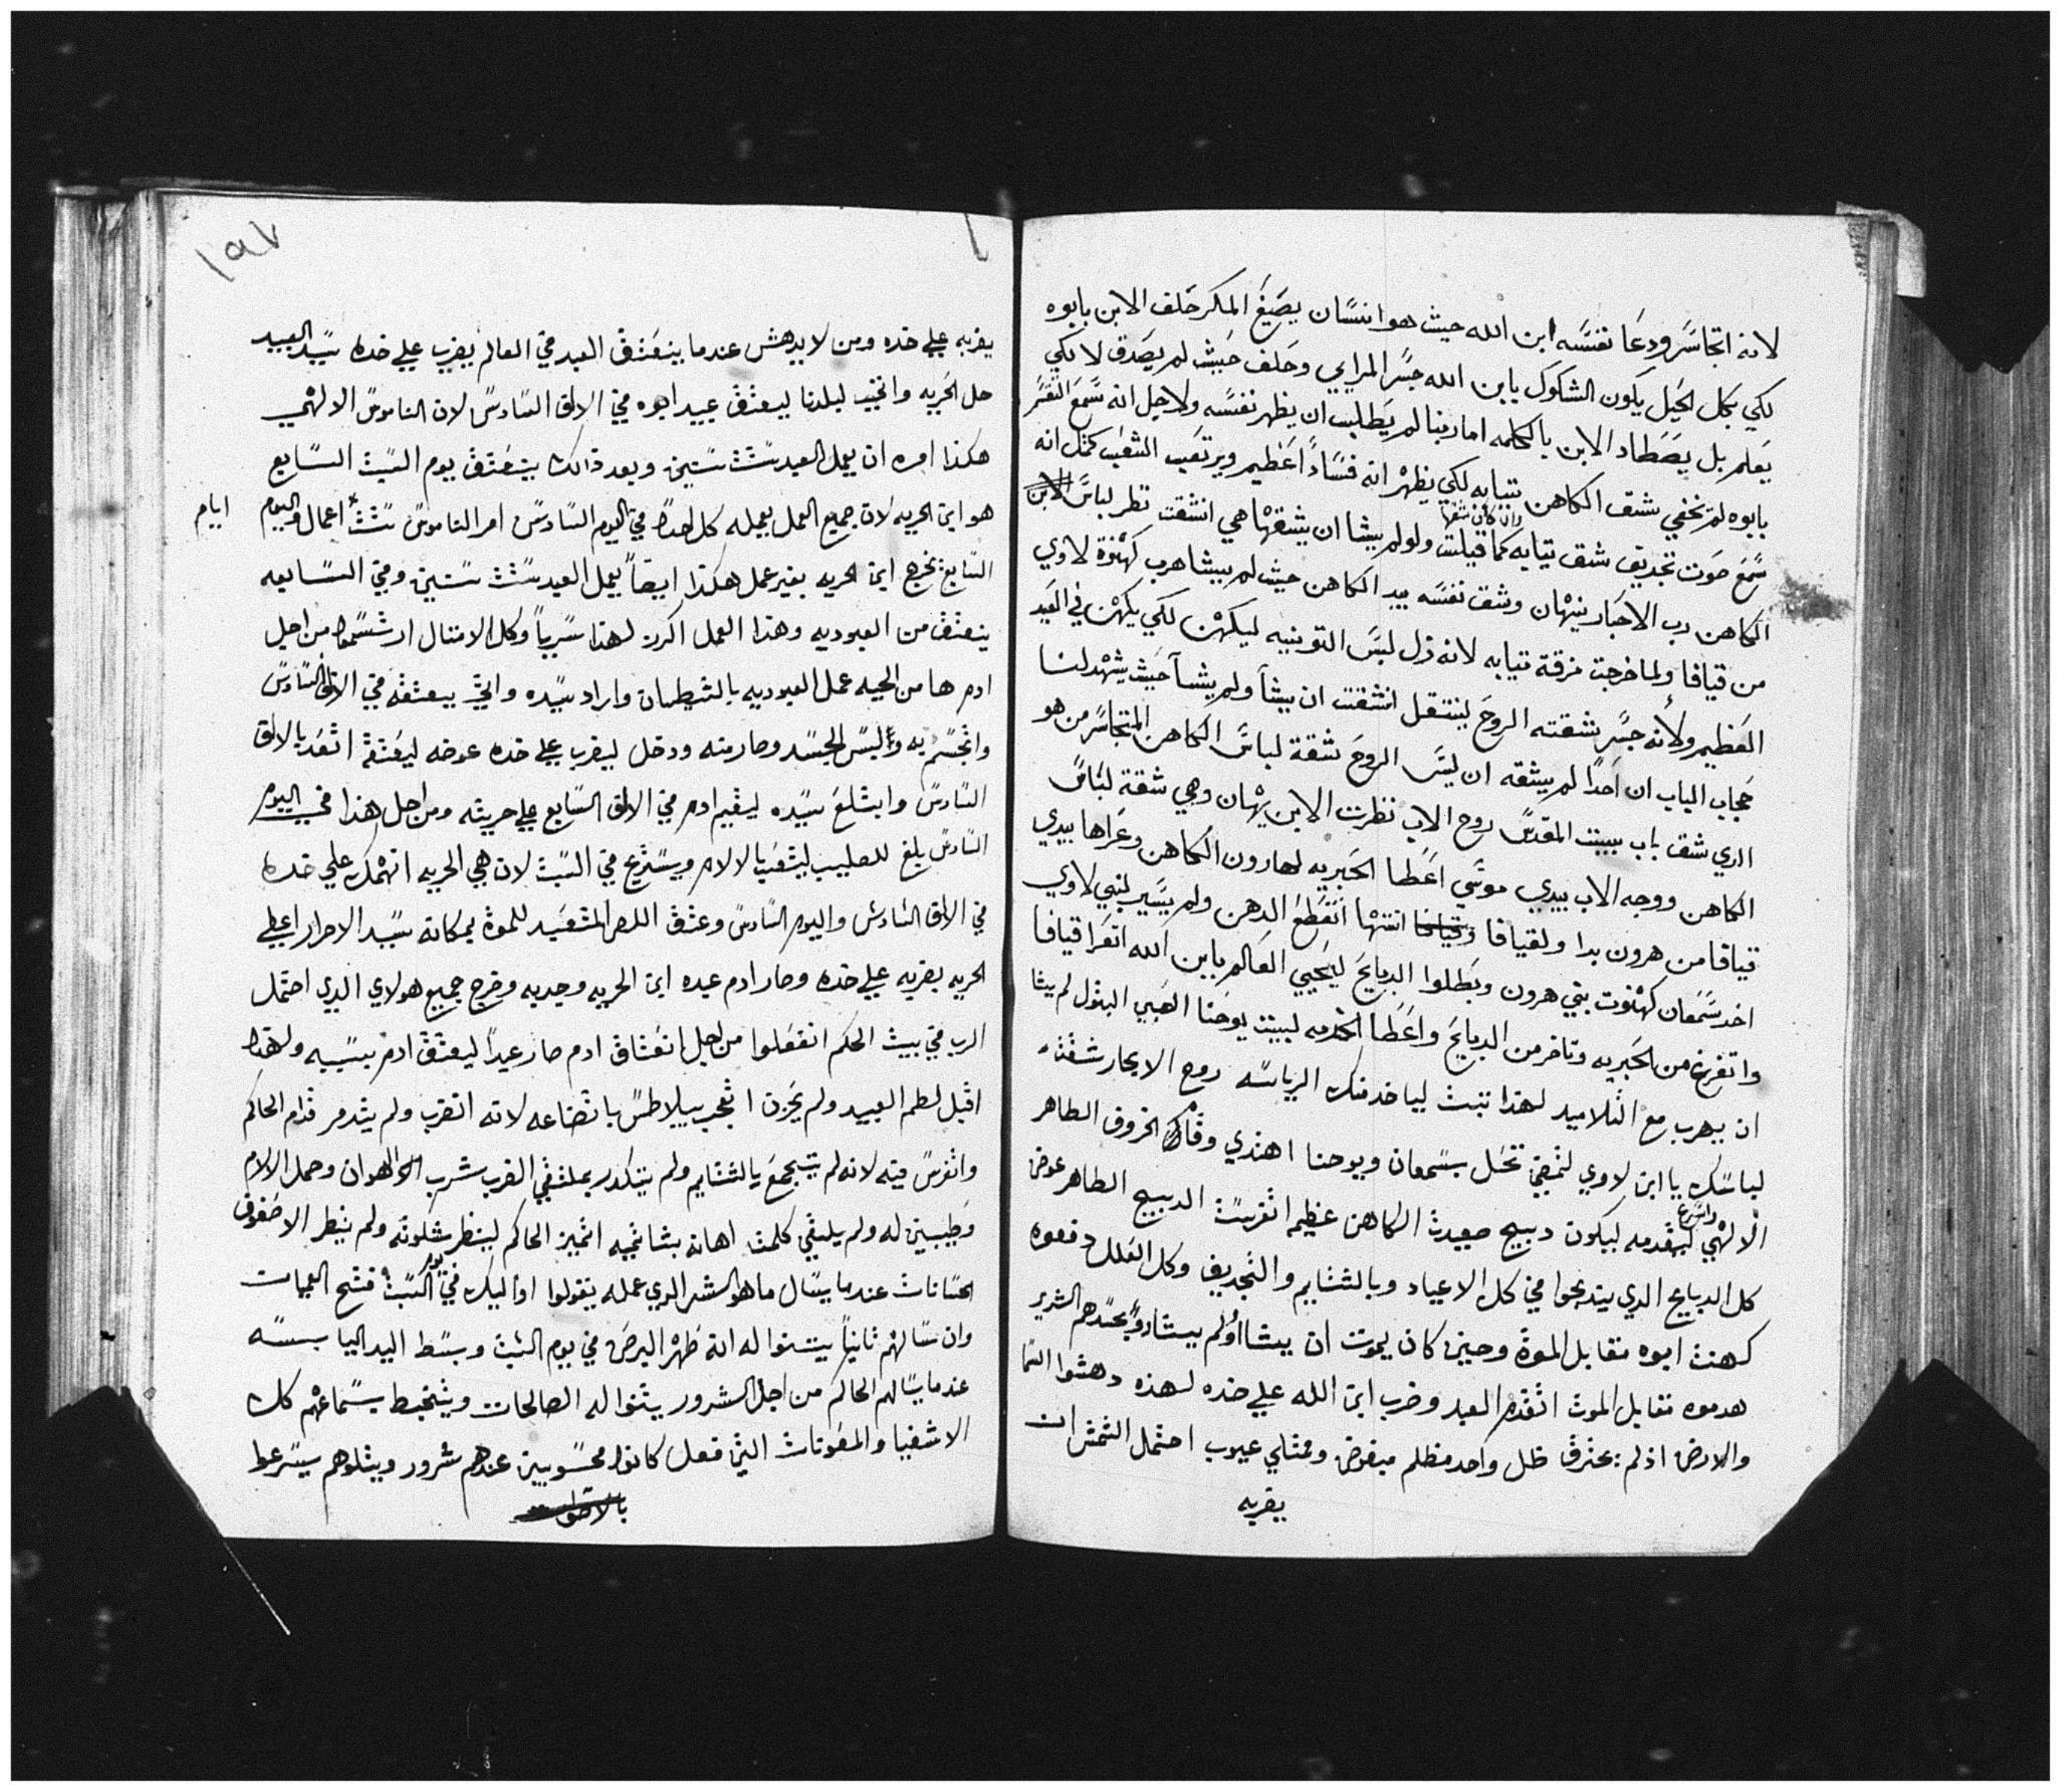 لانه اتجاسر ودعا نفسه ابن الله حيث هو انسان بصيغ المكر حلف الابن بابوه
لكي بكل الحيل يكون الشكوك بابن الله جسر المرايي وحلف حيث لم يصدق لا لكي
يعلم بل يصطاد الابن بالكلمه اما ربنا لم يطلب ان يظهر نفسه ولاجل انه سمع القسم
بابوه لم يخفي شق الكاهن تيابه لكي يظهر انه فسادا عظيم ويرتعب الشعب كمثل انه
سمع صوت تجديف شق تيابه كما قيلت ولو لم يشا ان يشقها هي انشقت نظر لباس الابن
وان كان شقها
الكاهن رب الاحبار ينهان وشق نفسه بيد الكاهن حيث لم يشا هرب كهنوة لاوي
من قيافا ولما خرجت مزقة تيابه لانه زل لبس التونيه ليكهن لكي يكهن في العيد
العظيم ولانه جسر شقته الروح لينتقل انشقت ان يشا ولم يشا حيث يشهد لنا
حجاب الباب ان احدا لم يشقه ان ليس الروح شقة لباس الكاهن المتجاسر من هو
الدي شق باب بيت المقدس روح الاب نظرت الابن يهان وهي شقة لباس
الكاهن ووجه الاب بيدي موسي اعطا الحبريه لهارون الكاهن وعراها بيدي
قيافا من هرون بدا ولقيافا وقيافا انتها انقطع الدهن ولم يسير لبني لاوي
اخد سمعان كهنوت بني هرون وبطلوا الدبايح ليحيي العالم بابن الله اتعرا قيافا
واتفرغ من الحبريه وتاخر من الدبايح واعطا الخدمه لبيت يوحنا الصبي البتول لم يشا
ان يهرب مع التلاميد لهدا تبت لياخد منك الرياسه روح الابحار شقته
لباسك يا ابن لاوي لتمضي تحل بسمعان ويوحنا اهتدي وقاك الخروف الطاهر
الالهي ليقدمه ليكون دبيح صعيدة الكاهن عظيم اتفرست الدبيح الطاهر عوض
واسرع
كل الدبايح الدي يتدبحوا في كل الاعياد وبالشتايم والتجديف وكل العلل دفعوه
كهنة ابوه مقابل الموة وحين كان يموت ان يشا او لم يشا وبحسدهم الشرير
هدموه مقابل الموت اتقدم العبد وضرب ابن الله علي خده لهده دهشوا السما
والارض اذ لم يحترق ظل واحد مظلم مبغوض وممتلي عيوب احتمل الشمس ان
يضربه
١٩٧
يضربه علي خده ومن لا يدهش عندما ينعتق العبد في العالم يضرب علي خده سيد العبيد
حل الحريه واتجند لبلدنا ليعتق عبيد ابوه في الالف السادس لان الناموس الالهي
هكدا امره ان يعمل العبد ستت سنين وبعد دالك ينعتق يوم السبت السابع
هو ابن الحريه لان جميع العمل يعمله كل احد في اليوم السادس امر الناموس ستت اعمال واليوم
ايام
السابع تخرج ابن الحريه بغير عمل هكدا ايضا يعمل العبد ستت سنين وفي السابعه
ينعتق من العبوديه وهدا العمل اكرز لهدا سريا وكل الامتال ارتسموا من اجل
ادم ها من الحيه عمل العبوديه بالشيطان واراد سيده والحي يعتقه في الالف السادس
واتجسم به ولبس الجسد وصار منه ودخل ليضرب علي خده عوضه ليعتقه اتعد بالالف
السادس وابتلع سيده ليقيم ادم في الالف السابع علي حريته ومن اجل هدا في اليوم
السادس بلغ للصليب ليتعب بالالام ويستريح في السبت لان هي الحريه انهمك علي خده
في الالف السادس واليوم السادس وعتق اللص المتقيد للموة بمكانه سيد الاحرار اعطي
الحريه بضربه علي خده وصار ادم عبده ابن الحريه وحديه وخرج جميع هولاي الدي احتمل
الرب في بيت الحكم انفعلوا من اجل انعتاق ادم صار عبدا ليعتق ادم بسببه ولهدا
اقبل لطم العبيد ولم يحزن اتعجب بيلاطس باتضاعه لانه انضرب ولم يتدمر قدام الحاكم
واتفرس فيه لانه لم يتبجع بالشتايم ولم يتكدر بملتقي الضرب شرب الهوان وحمل الالام
وطيبين له ولم يلتقي كلمت اهانه بشانحيه اتميز الحاكم لينظر شكوته ولم ينظر الا صفوف
الحسانات عندما يسال ما هو الشر الدي عمله يقولوا اوليك في يوم السبت فتح العميات
وان سالهم تانيا يتبتوا له انه طهر البرص في يوم السبت وبسط اليد اليابسه
عندما يسالهم الحاكم من اجل الشرور يتنوا له الصالحات ويتخبط بسماعهم كل
الاشفيا والمعونات التي فعل كانوا محسوبين عندهم شرور ويتلوهم بسرعه
بالاصوات